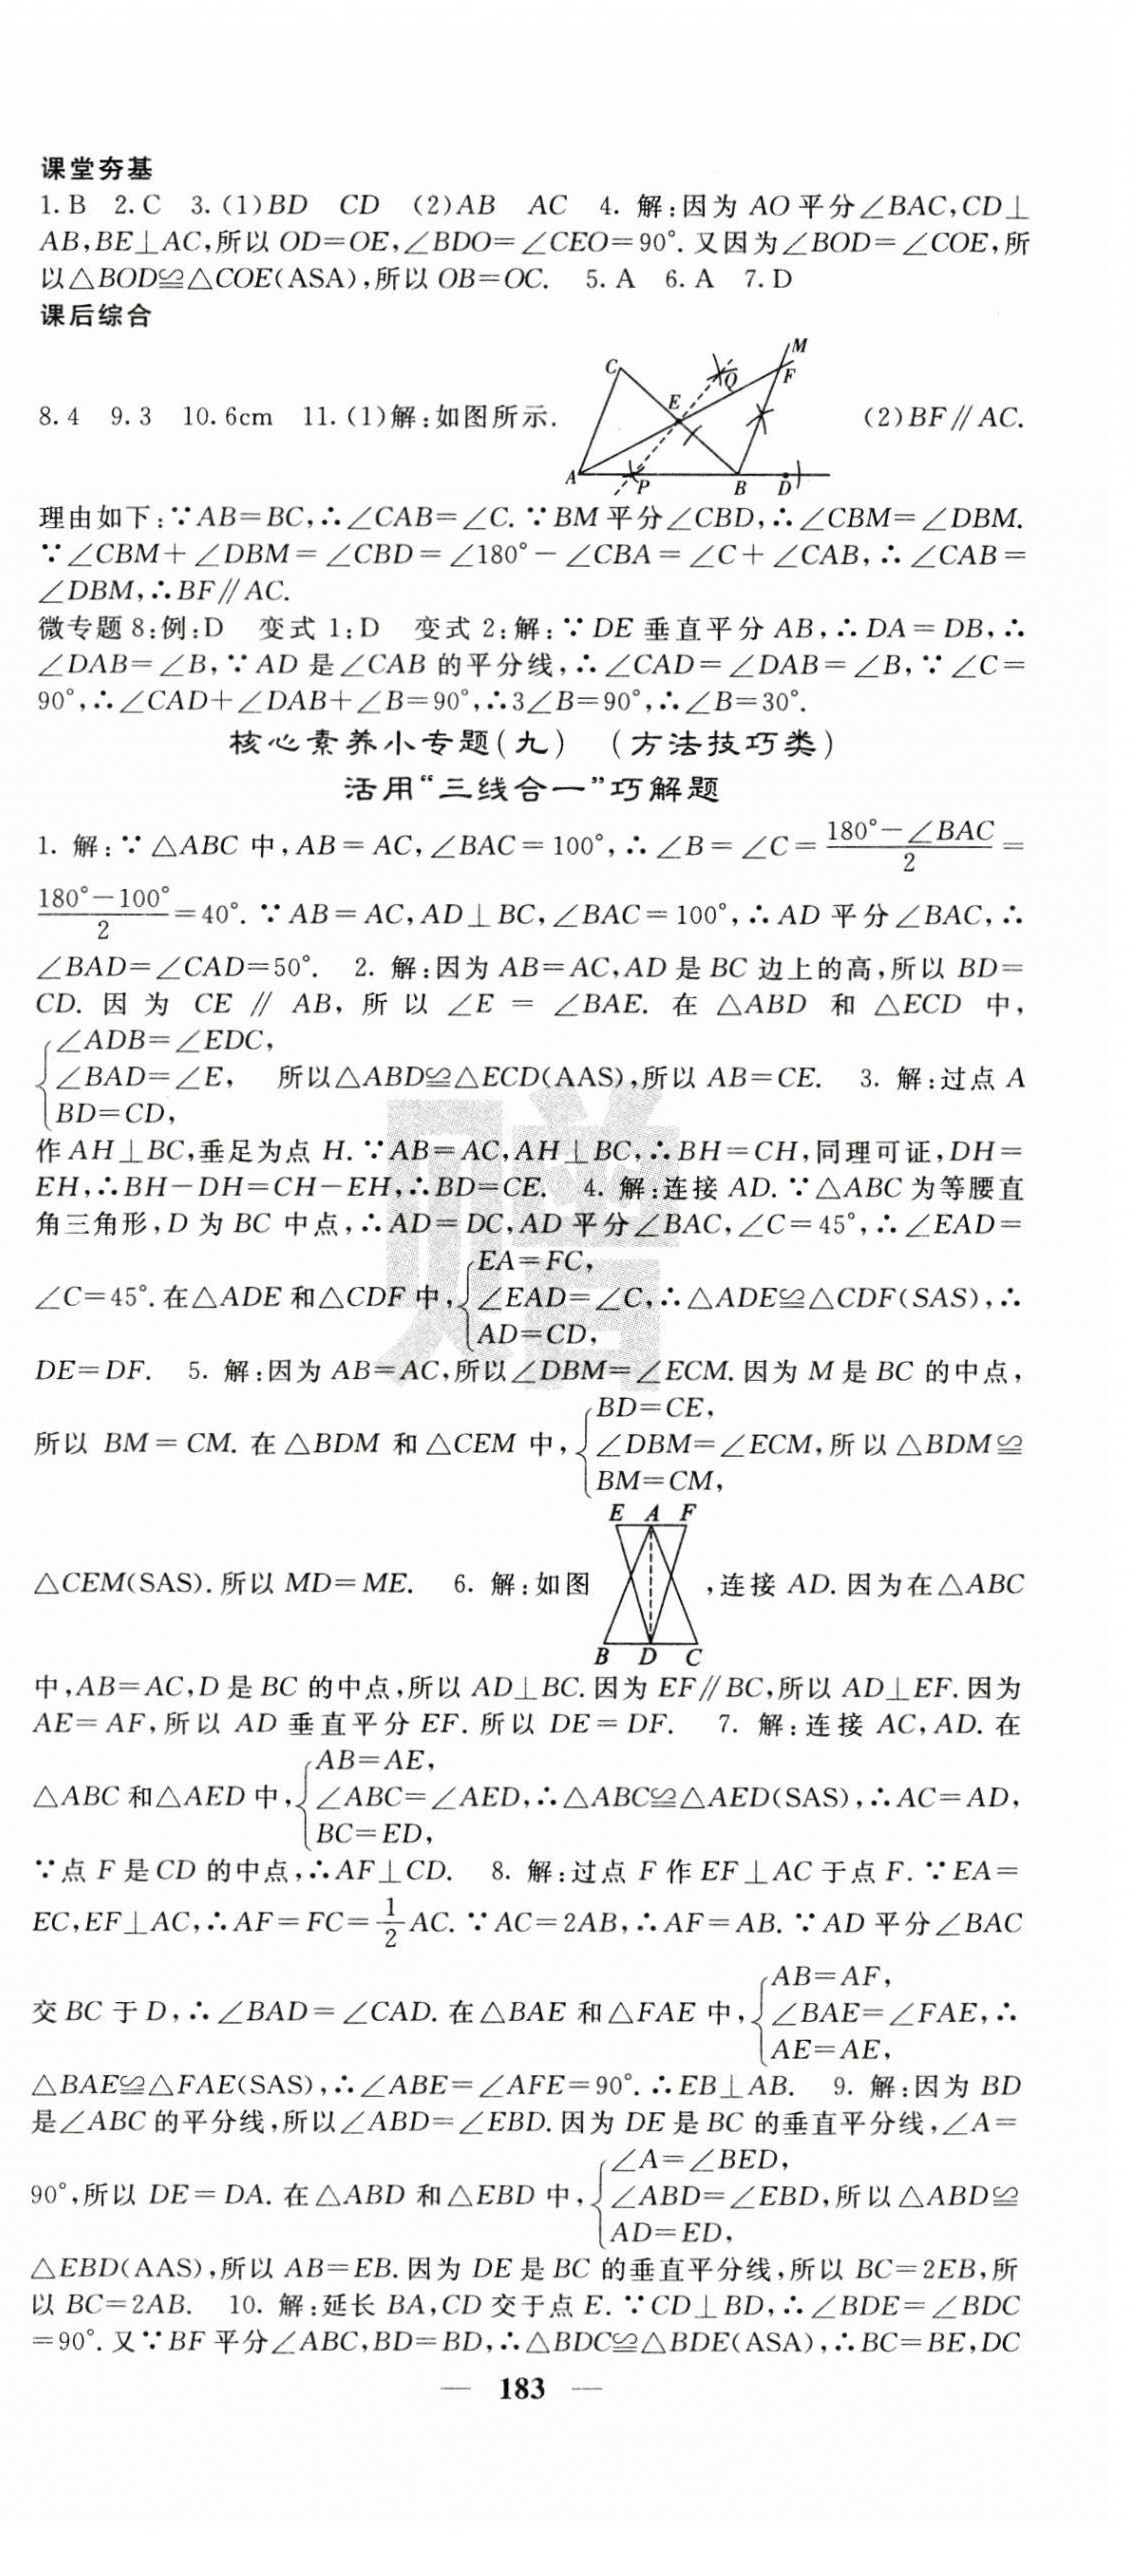 课堂夯基
1. B 2. C 3. (1)BD CD (2)AB AC 4. 解:因为 AO 平分∠BAC,CD⊥
AB,BE⊥AC,所以 OD=OE,∠BDO=∠CEO=90°. 又因为∠BOD=∠COE,所
以△BOD≌△COE(ASA),所以 OB=OC. 5. A 6. A 7. D
课后综合
8. 4 9. 3 10. 6cm 11. (1)解:如图所示. (2)BF∥AC.
C E Q M F A P B D
理由如下:∵AB=BC,∴∠CAB=∠C. ∵BM 平分∠CBD,∴∠CBM=∠DBM.
∵∠CBM+∠DBM=∠CBD=∠180°-∠CBA=∠C+∠CAB,∴∠CAB=
∠DBM,∴BF∥AC.
微专题 8:例:D 变式 1:D 变式 2:解:∵DE 垂直平分 AB,∴DA=DB,∴
∠DAB=∠B,∵AD 是∠CAB 的平分线,∴∠CAD=∠DAB=∠B,∵∠C=
90°,∴∠CAD+∠DAB+∠B=90°,∴3∠B=90°,∴∠B=30°.
核心素养小专题(九) (方法技巧类)
活用“三线合一”巧解题
1. 解:∵△ABC 中,AB=AC,∠BAC=100°,∴∠B=∠C=(180°-∠BAC)/2=
(180°-100°)/2=40°. ∵AB=AC,AD⊥BC,∠BAC=100°,∴AD 平分∠BAC,∴
∠BAD=∠CAD=50°. 2. 解:因为 AB=AC,AD 是 BC 边上的高,所以 BD=
CD. 因为 CE∥AB,所以∠E=∠BAE. 在△ABD 和△ECD 中,
∠ADB=∠EDC,
∠BAD=∠E, 所以△ABD≌△ECD(AAS),所以 AB=CE. 3. 解:过点 A
BD=CD,
作 AH⊥BC,垂足为点 H. ∵AB=AC,AH⊥BC,∴BH=CH,同理可证,DH=
EH,∴BH-DH=CH-EH,∴BD=CE. 4. 解:连接 AD. ∵△ABC 为等腰直
角三角形,D 为 BC 中点,∴AD=DC,AD 平分∠BAC,∠C=45°,∴∠EAD=
EA=FC,
∠C=45°. 在△ADE 和△CDF 中,∠EAD=∠C,∴△ADE≌△CDF(SAS),∴
AD=CD,
DE=DF. 5. 解:因为 AB=AC,所以∠DBM=∠ECM. 因为 M 是 BC 的中点,
BD=CE,
所以 BM=CM. 在△BDM 和△CEM 中,∠DBM=∠ECM,所以△BDM≌
BM=CM,
E A F
△CEM(SAS). 所以 MD=ME. 6. 解:如图 ,连接 AD. 因为在△ABC
B D C
中,AB=AC,D 是 BC 的中点,所以 AD⊥BC. 因为 EF∥BC,所以 AD⊥EF. 因为
AE=AF,所以 AD 垂直平分 EF. 所以 DE=DF. 7. 解:连接 AC,AD. 在
AB=AE,
△ABC 和△AED 中,∠ABC=∠AED,∴△ABC≌△AED(SAS),∴AC=AD,
BC=ED,
∵点 F 是 CD 的中点,∴AF⊥CD. 8. 解:过点 F 作 EF⊥AC 于点 F. ∵EA=
EC,EF⊥AC,∴AF=FC=1/2AC. ∵AC=2AB,∴AF=AB. ∵AD 平分∠BAC
AB=AF,
交 BC 于 D,∴∠BAD=∠CAD. 在△BAE 和△FAE 中,∠BAE=∠FAE,∴
AE=AE,
△BAE≌△FAE(SAS),∴∠ABE=∠AFE=90°. ∴EB⊥AB. 9. 解:因为 BD
是∠ABC 的平分线,所以∠ABD=∠EBD. 因为 DE 是 BC 的垂直平分线,∠A=
∠A=∠BED,
90°,所以 DE=DA. 在△ABD 和△EBD 中,∠ABD=∠EBD,所以△ABD≌
AD=ED,
△EBD(AAS),所以 AB=EB. 因为 DE 是 BC 的垂直平分线,所以 BC=2EB,所
以 BC=2AB. 10. 解:延长 BA,CD 交于点 E. ∵CD⊥BD,∴∠BDE=∠BDC
=90°. 又∵BF 平分∠ABC,BD=BD,∴△BDC≌△BDE(ASA),∴BC=BE,DC
赠
— 183 —